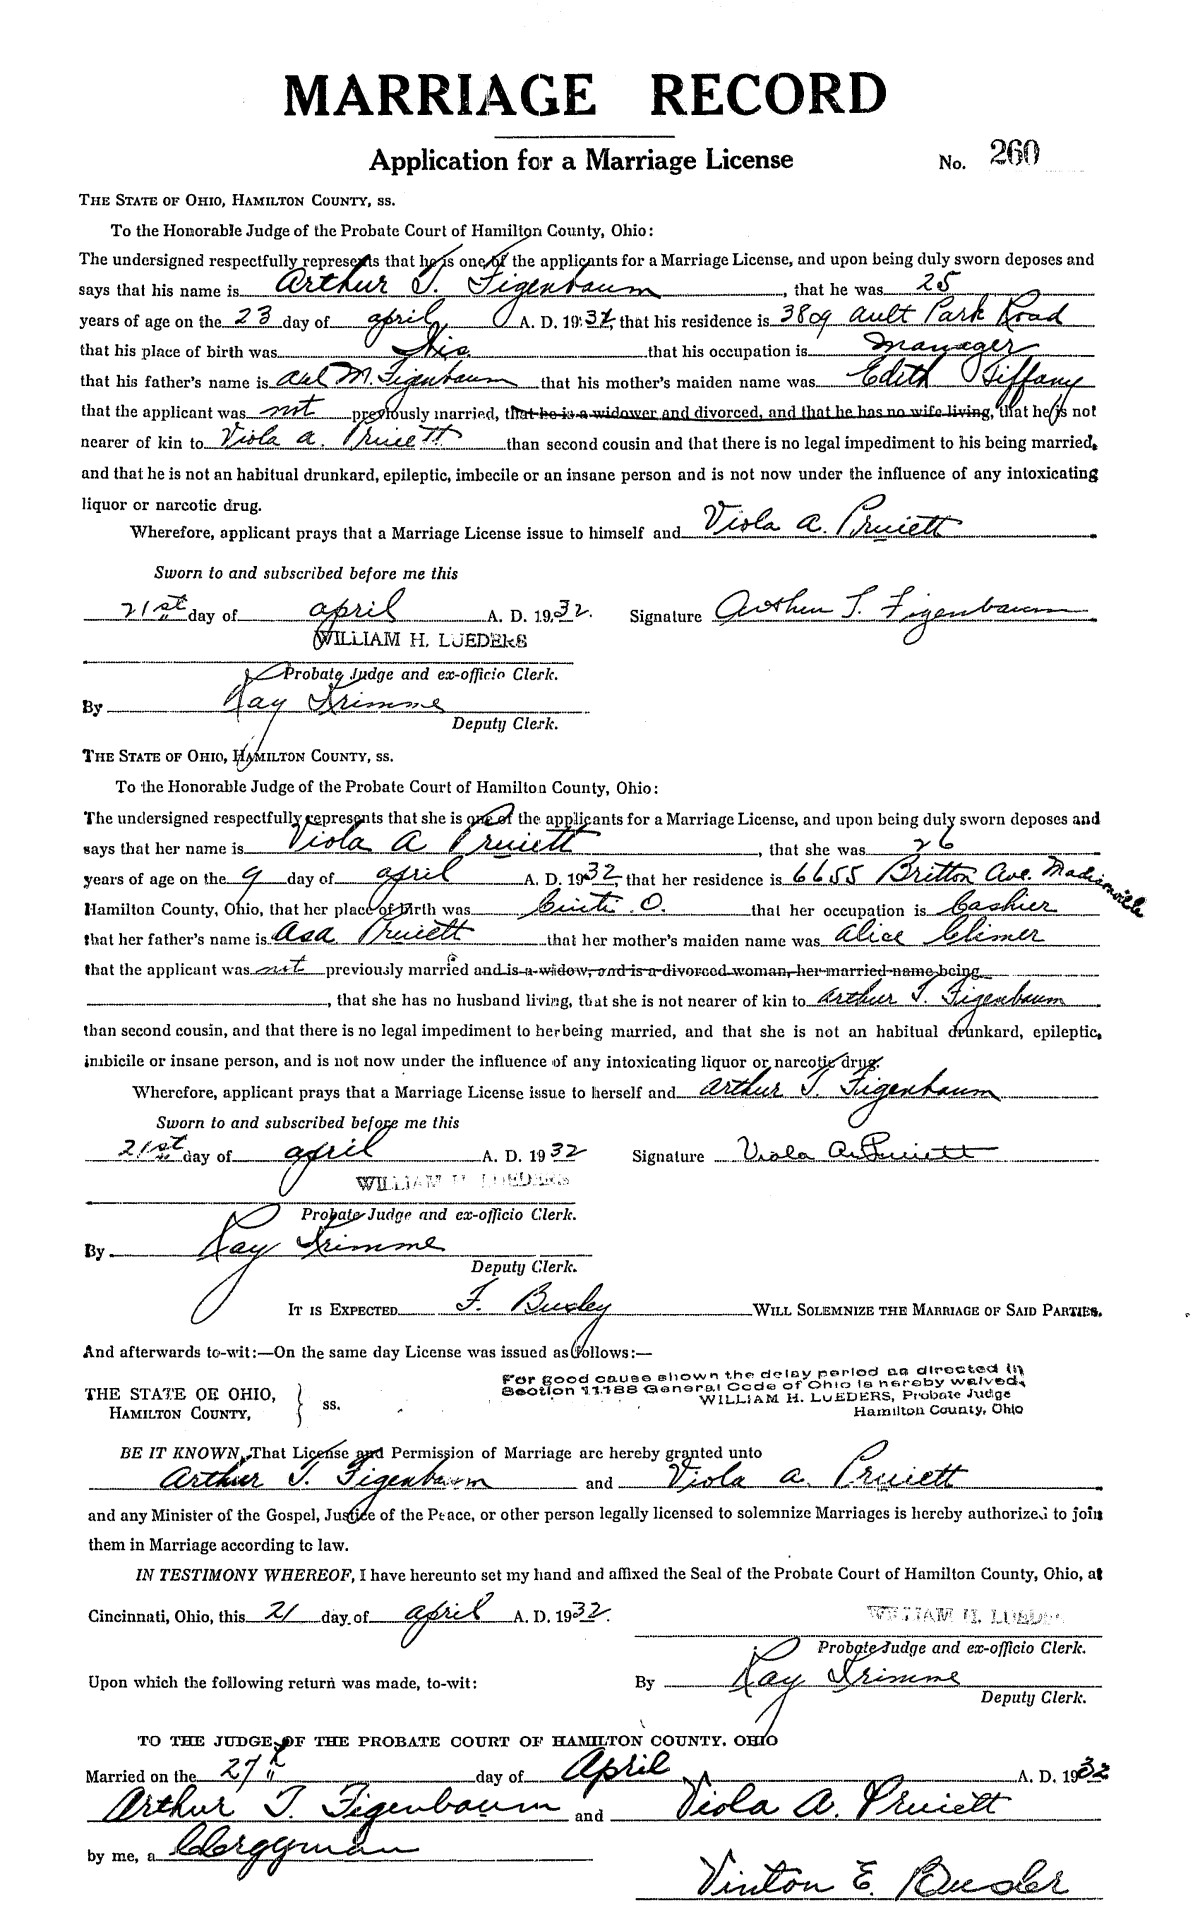 MARRIAGE RECORD
Application for a Marriage License No. 260
THE STATE OF OHIO, HAMILTON COUNTY, SS.
To the Honorable Judge of the Probate Court of Hamilton County, Ohio:
The undersigned respectfully represents that he is one of the applicants for a Marriage License, and upon being duly sworn deposes and
says that his name is Arthur T. Figenbaum, that he was 25
years of age on the 23 day of April A. D. 1932, that his residence is 3809 Ault Park Road
that his place of birth was that his occupation is Manager
that his father's name is M. Figenbaum that his mother's maiden name was Edith Tiffany
that the applicant was not previously married, that he is a widower and divorced, and that he has no wife living, that he is not
nearer of kin to Viola A. Pruiett than second cousin and that there is no legal impediment to his being married,
and that he is not an habitual drunkard, epileptic, imbecile or an insane person and is not now under the influence of any intoxicating
liquor or narcotic drug.
Wherefore, applicant prays that a Marriage License issue to himself and Viola A. Pruiett
Sworn to and subscribed before me this
21st day of April A. D. 19,32. Signature Arthur T. Figenbaum
WILLIAM H. LUEDERS
Probate Judge and ex-officio Clerk.
By Ray Krimme
Deputy Clerk.
THE STATE OF OHIO, HAMILTON COUNTY, SS.
To the Honorable Judge of the Probate Court of Hamilton County, Ohio:
The undersigned respectfully represents that she is one of the applicants for a Marriage License, and upon being duly sworn deposes and
says that her name is Viola A Pruiett, that she was 26
years of age on the 9 day of April A. D. 1932, that her residence is 6655 Britton Ave. Madisonville
Hamilton County, Ohio, that her place of birth was Cinti. O. that her occupation is Cashier
that her father's name is Asa Pruiett that her mother's maiden name was Alice Climer
that the applicant was not previously married and is a widow, and is a divorced woman, her married name being
, that she has no husband living, that she is not nearer of kin to Arthur T. Figenbaum
than second cousin, and that there is no legal impediment to her being married, and that she is not an habitual drunkard, epileptic,
imbicile or insane person, and is not now under the influence of any intoxicating liquor or narcotic drug.
Wherefore, applicant prays that a Marriage License issue to herself and Arthur T. Figenbaum
Sworn to and subscribed before me this
21st day of April A. D. 1932 Signature Viola A. Pruiett
WILLIAM H. LUEDERS
Probate Judge and ex-officio Clerk.
By Ray Krimme
Deputy Clerk.
IT IS EXPECTED F. Busley WILL SOLEMNIZE THE MARRIAGE OF SAID PARTIES.
And afterwards to-wit:—On the same day License was issued as follows:—
For good cause shown the delay period as directed in
Section 11188 General Code of Ohio is hereby waived.
WILLIAM H. LUEDERS, Probate Judge
Hamilton County, Ohio
THE STATE OF OHIO,
HAMILTON COUNTY, } ss.
BE IT KNOWN, That License and Permission of Marriage are hereby granted unto
Arthur T. Figenbaum and Viola A. Pruiett
and any Minister of the Gospel, Justice of the Peace, or other person legally licensed to solemnize Marriages is hereby authorized to join
them in Marriage according to law.
IN TESTIMONY WHEREOF, I have hereunto set my hand and affixed the Seal of the Probate Court of Hamilton County, Ohio, at
Cincinnati, Ohio, this 21 day of April A. D. 1932.
WILLIAM H. LUEDERS
Probate Judge and ex-officio Clerk.
Upon which the following return was made, to-wit: By Ray Krimme
Deputy Clerk.
TO THE JUDGE OF THE PROBATE COURT OF HAMILTON COUNTY, OHIO
Married on the 27th day of April A. D. 1932
Arthur T. Figenbaum and Viola A. Pruiett
by me, a Clergyman
Vinton E. Busler